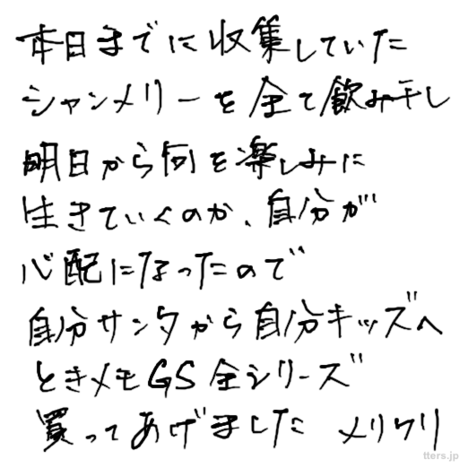 本日までに収集していた
シャンメリーを全て飲み干し
明日から何を楽しみに
生きていくのか、自分が
心配になったので
自分サンタから自分キッズへ
ときメモGS全シリーズ
買ってあげました メリクリ
tters.jp